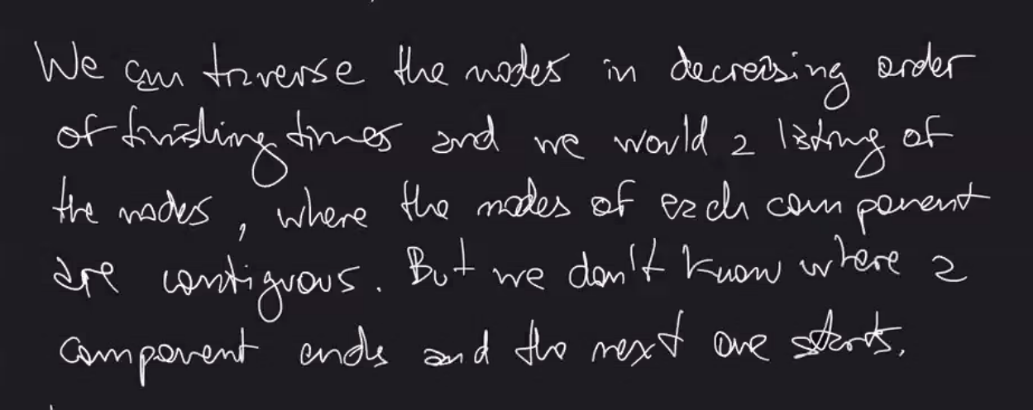 We can traverse the nodes in decreasing order
of finishing times and we would a listing of
the nodes, where the nodes of each component
are contiguous. But we don't know where a
component ends and the next one starts.